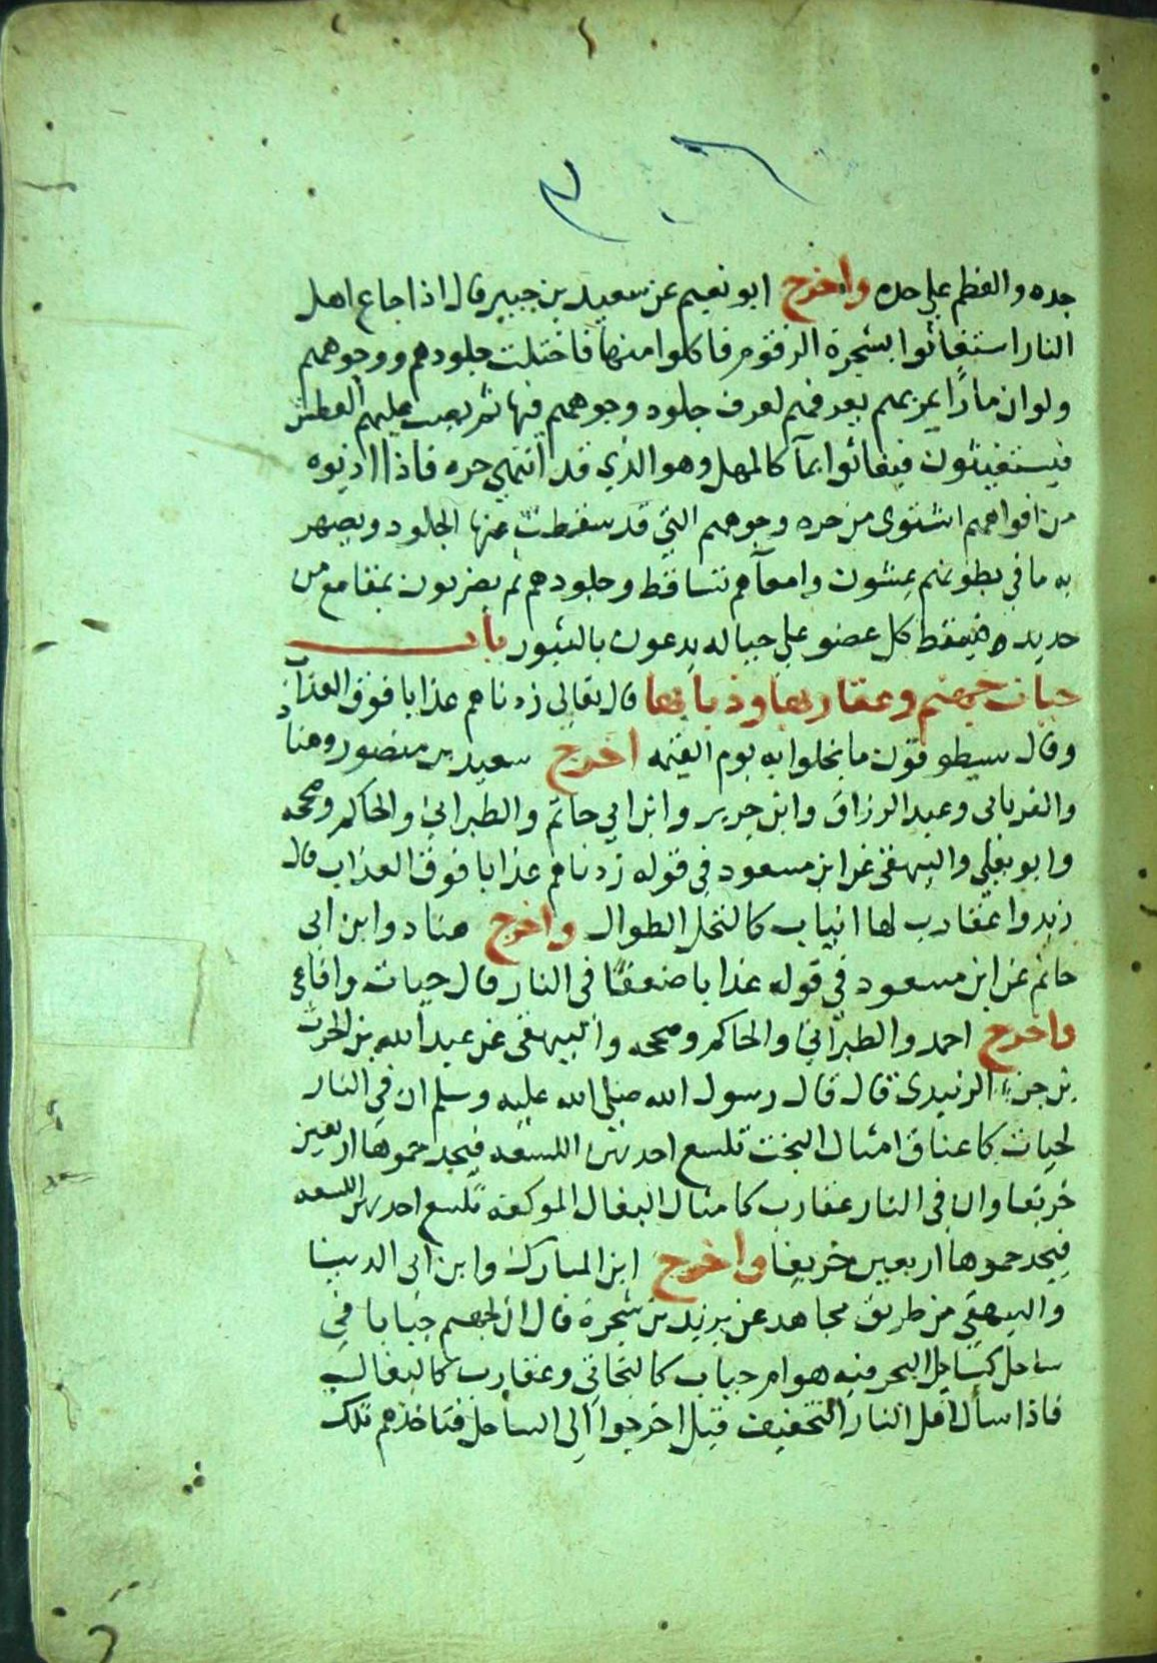 حده والعظم على حده واخرج ابو نعيم عن سعيد بن جبير قال اذا جاع اهل
النار استغاثوا بشجرة الزقوم فاكلوا منها فاختلت جلودهم ووجوههم
ولو ان مارًا يمر بهم يعرفهم لعرف جلود وجوههم فيها ثم يصب عليهم العطش
فيستغيثون فيغاثوا بمآ كالمهل وهو الذي قد انتهى حره فاذا ادنوه
من افواههم اشتوى من حره وجوههم التي قد سقطت عنها الجلود ويصهر
به ما في بطونهم يمشون وامعآهم تتساقط وجلودهم ثم يضربون بمقامع من
حديد فيسقط كل عضو على حياله يدعون بالثبور باب
حيات جهنم وعقاربها وذبابها قال تعالى زدناهم عذابا فوق العذاب
وقال سيطوقون ما بخلوا به يوم القيمه اخرج سعيد بن منصور وهناد
والفريابى وعبد الرزاق وابن جرير وابن ابي حاتم والطبراني والحاكم وصححه
وابو يعلي والبيهقى عن ابن مسعود في قوله زدناهم عذابا فوق العذاب قال
زيدوا عقارب لها انياب كالنخل الطوال واخرج هناد وابن ابى
حاتم عن ابن مسعود في قوله عذابا ضعفًا فى النار قال حيات وافاعى
واخرج احمد والطبراني والحاكم وصححه والبيهقى عن عبد الله بن الحرث
بن جزء الزبيدى قال قال رسول الله صلى الله عليه وسلم ان في النار
لحيات كاعناق امثال البخت تلسع احديهن اللسعه فيجد حموها اربعين
خريفا وان فى النار عقارب كامثال البغال الموكفه تلسع احديهن اللسعه
فيجد حموها اربعين خريفا واخرج ابن المبارك وابن ابى الدنيا
والبيهقي من طريق مجاهد عن يزيد بن شجرة قال ان لجهنم جبابا في
ساحل كساحل البحر فيه هوام حيات كالبخاتي وعقارب كالبغال
فاذا سأل اهل النار التخفيف قيل اخرجوا الى الساحل فتاخذهم تلك